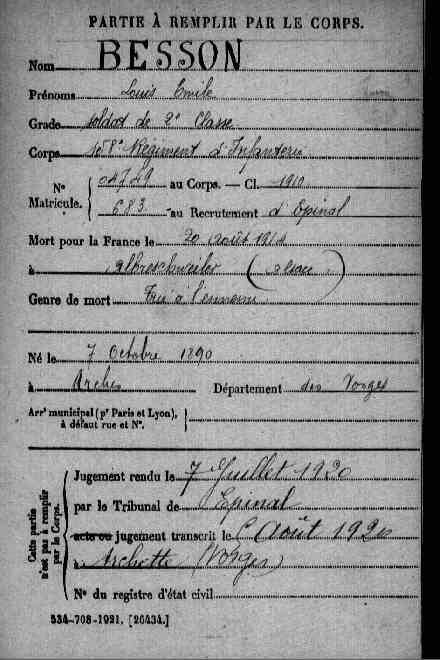 PARTIE À REMPLIR PAR LE CORPS.
Nom BESSON
Prénoms Louis Emile
Grade soldat de 2e Classe
Corps 158e Régiment d'Infanterie
N° Matricule. 04749 au Corps. — Cl. 1910
683 au Recrutement d'Epinal
Mort pour la France le 20 août 1914
à Abreschweiler (Alsace)
Genre de mort Tué à l'ennemi
Né le 7 Octobre 1890
à Arches Département des Vosges
Arrt municipal (pr Paris et Lyon),
à défaut rue et N°.
Cette partie n'est pas à remplir par le Corps.
Jugement rendu le 7 Juillet 1920
par le Tribunal de Epinal
acte ou jugement transcrit le Août 1920
à Archette (Vosges)
N° du registre d'état civil
534-708-1921. [26434.]